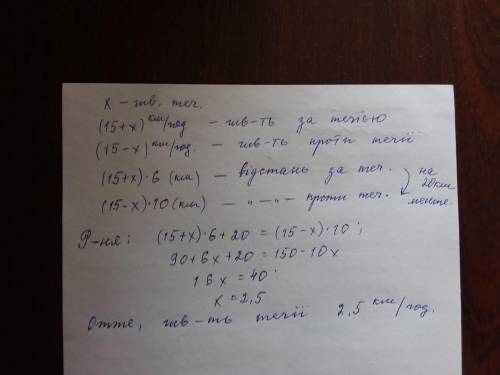 x – шв. теч.
(15+x) км/год – шв-ть за течією
(15-x) км/год. – шв-ть проти течії
(15+x)·6 (км) – відстань за теч.
(15-x)·10 (км) – "–"– проти теч.
на 20км менше.
Р-ня: (15+x)·6+20 = (15-x)·10;
90+6x+20 = 150-10x
16x = 40
x = 2,5
Отже, шв-ть течії 2,5 км/год.